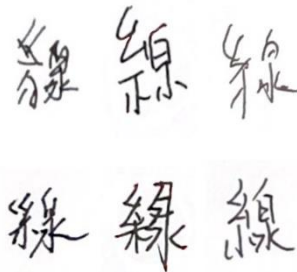 線 線 線
線 線 線